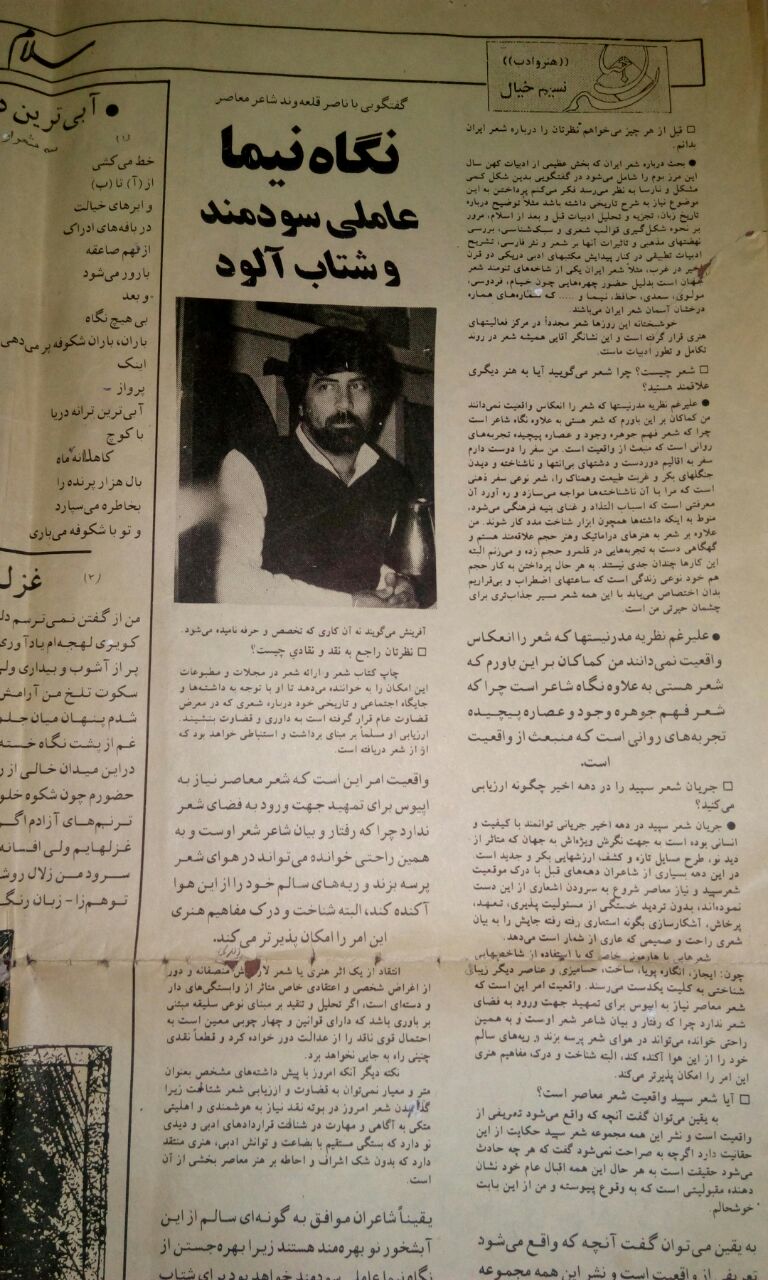 سلام
((هنر و ادب))
نسیم خیال
گفتگویی با ناصر قلعه‌وند شاعر معاصر
نگاه نیما
عاملی سودمند
و شتاب آلود
□ قبل از هر چیز می‌خواهم نظرتان را درباره شعر ایران
بدانم.
● بحث درباره شعر ایران که بخش عظیمی از ادبیات کهن سال
این مرز بوم را شامل می‌شود در گفتگویی بدین شکل کمی
مشکل و نارسا به نظر می‌رسد فکر می‌کنم پرداختن به این
موضوع نیاز به شرح تاریخی داشته باشد مثلاً توضیح درباره
تاریخ زبان، تجزیه و تحلیل ادبیات قبل و بعد از اسلام، مرور
بر نحوه شکل‌گیری قوالب شعری و سبک‌شناسی، بررسی
نهضتهای مذهبی و تاثیرات آنها بر شعر و نثر فارسی، تشریح
ادبیات تطبیقی در کنار پیدایش مکتبهای ادبی دریکی دو قرن
اخیر در غرب، مثلاً شعر ایران یکی از شاخه‌های تنومند شعر
جهان است بدلیل حضور چهره‌هایی چون خیام، فردوسی،
مولوی، سعدی، حافظ، نیما و ..... که ستاره‌های همواره
درخشان آسمان شعر ایران می‌باشند.
خوشبختانه این روزها شعر مجدداً در مرکز فعالیتهای
هنری قرار گرفته است و این نشانگر آقایی همیشه شعر در روند
تکامل و تطور ادبیات ماست.
□ شعر چیست؟ چرا شعر می‌گویید آیا به هنر دیگری
علاقمند هستید؟
● علیرغم نظریه مدرنیستها که شعر را انعکاس واقعیت نمی‌دانند
من کماکان بر این باورم که شعر هستی به علاوه نگاه شاعر است
چرا که شعر فهم جوهره وجود و عصاره پیچیده تجربه‌های
روانی است که منبعث از واقعیت است. من سفر را دوست دارم
سفر به اقالیم دوردست و دشتهای بی‌انتها و ناشناخته و دیدن
جنگلهای بکر و غربت طبیعت وهمناک را، شعر نوعی سفر ذهنی
است که مرا با آن ناشناخته‌ها مواجه می‌سازد و ره آورد آن
معرفتی است که اسباب التذاذ و غنای بنیه فرهنگی می‌شود،
منوط به اینکه داشته‌ها همچون ابزار شناخت مدد کار شوند. من
علاوه بر شعر به هنرهای دراماتیک وهنر حجم علاقه‌مند هستم و
گهگاهی دست به تجربه‌هایی در قلمرو حجم زده و می‌زنم البته
این کارها چندان جدی نیستند. به هر حال پرداختن به کار حجم
هم خود نوعی زندگی است که ساعتهای اضطراب و بی‌قراریم
بدان اختصاص می‌یابد با این همه شعر مسیر جذاب‌تری برای
چشمان حیرتی من است.
● علیرغم نظریه مدرنیستها که شعر را انعکاس
واقعیت نمی‌دانند من کماکان بر این باورم که
شعر هستی به علاوه نگاه شاعر است چرا که
شعر فهم جوهره وجود و عصاره پیچیده
تجربه‌های روانی است که منبعث از واقعیت
است.
□ جریان شعر سپید را در دهه اخیر چگونه ارزیابی
می‌کنید؟
● جریان شعر سپید در دهه اخیر جریانی توانمند با کیفیت و
انسانی بوده است به جهت نگرش ویژه‌اش به جهان که متاثر از
دید نو، طرح مسایل تازه و کشف ارزشهایی بکر و جدید است.
در این دهه بسیاری از شاعران دهه‌های قبل با درک موقعیت
شعرسپید و نیاز معاصر شروع به سرودن اشعاری از این دست
نموده‌اند، بدون تردید خستگی از مسئولیت پذیری، تعهد،
پرخاش، آشکارسازی بگونه استعاری رفته رفته جایش را به بیان
شعری راحت و صمیمی که عاری از شعار است می‌دهد.
شعرهایی با هارمونی خاص که با استفاده از شاخصهایی
چون: ایجاز، انگاره پویا، ساخت، حسامیزی و عناصر دیگر زیبایی
شناختی به کلیت یکدست می‌رسند. واقعیت امر این است که
شعر معاصر نیاز به اپیوس برای تمهید جهت ورود به فضای
شعر ندارد چرا که رفتار و بیان شاعر شعر اوست و به همین
راحتی خواننده می‌تواند در هوای شعر پرسه بزند و ریه‌های سالم
خود را از این هوا آکنده کند، البته شناخت و درک مفاهیم هنری
این امر را امکان پذیرتر می‌کند.
□ آیا شعر سپید واقعیت شعر معاصر است؟
به یقین می‌توان گفت آنچه که واقع می‌شود تعریفی از
واقعیت است و نشر این همه مجموعه شعر سپید حکایت از این
حقانیت دارد اگرچه به صراحت نمی‌شود گفت که هر چه حادث
می‌شود حقیقت است به هر حال این همه اقبال عام خود نشان
دهنده مقبولیتی است که به وقوع پیوسته و من از این بابت
خوشحالم.
به یقین می‌توان گفت آنچه که واقع می‌شود
تعریفی از واقعیت است و نشر این همه مجموعه
آفرینش می‌گویند نه آن کاری که تخصص و حرفه نامیده می‌شود.
□ نظرتان راجع به نقد و نقادی چیست؟
چاپ کتاب شعر و ارائه شعر در مجلات و مطبوعات
این امکان را به خواننده می‌دهد تا او با توجه به داشته‌ها و
جایگاه اجتماعی و تاریخی خود درباره شعری که در معرض
قضاوت عام قرار گرفته است به داوری و قضاوت بنشیند.
ارزیابی او مسلماً بر مبنای برداشت و استنباطی خواهد بود که
او از شعر دریافته است.
واقعیت امر این است که شعر معاصر نیاز به
اپیوس برای تمهید جهت ورود به فضای شعر
ندارد چرا که رفتار و بیان شاعر شعر اوست و به
همین راحتی خواننده می‌تواند در هوای شعر
پرسه بزند و ریه‌های سالم خود را از این هوا
آکنده کند، البته شناخت و درک مفاهیم هنری
این امر را امکان پذیرتر می‌کند.
انتقاد از یک اثر هنری یا شعر منصفانه و دور
از اغراض شخصی و اعتقادی خاص متاثر از وابستگی‌های دار
و دسته‌ای است، اگر تحلیل و تنقید بر مبنای نوعی سلیقه مبتنی
بر باوری باشد که دارای قوانین و چهار چوبی معین است به
احتمال قوی ناقد را از عدالت دور خواهد کرد و قطعاً نقدی
چنینی راه به جایی نخواهد برد.
نکته دیگر آنکه امروز با پیش داشته‌های مشخص بعنوان
متر و معیار نمی‌توان به قضاوت و ارزیابی شعر شتافت زیرا
گذاردن شعر امروز در بوته نقد نیاز به هوشمندی و اهلیتی
متکی به آگاهی و مهارت در شناخت قراردادهای ادبی و دیدی
نو دارد که بستگی مستقیم با بضاعت و توانش ادبی، هنری منتقد
دارد که بدون شک اشراف و احاطه بر هنر معاصر بخشی از آن
است.
یقیناً شاعران موافق به گونه‌ای سالم از این
آبشخور نو بهره‌مند هستند زیرا بهره‌جستن از
نگاه نیما عاملی سودمند خواهد بود برای شتاب
● آبی‌ترین
(۱)
خط می‌کشی
از (آ) تا (ب)
و ابرهای خیالت
در بافه‌های ادراکی
از فهم صاعقه
بارور می‌شود
و بعد
بی هیچ نگاه
باران، باران شکوفه بر می‌دهی
اینک
پرواز
آبی‌ترین ترانه دریا
با کوچ
کاهلانه ماه
بال هزار پرنده را
بخاطره می‌سپارد
و تو با شکوفه می‌باری
(۲) غزل
من از گفتن نمی‌ترسم
کویری لهجه‌ام یادآوری
پر از آشوب و بیداری
سکوت تلخ من آرامش
شدم پنهان میان
غم از پشت نگاه خسته
دراین میدان خالی از
حضورم چون شکوه
ترنم‌های آزادم اگر
غزلهایم ولی افسانه
سرود من زلال
توهم‌زا - زبان